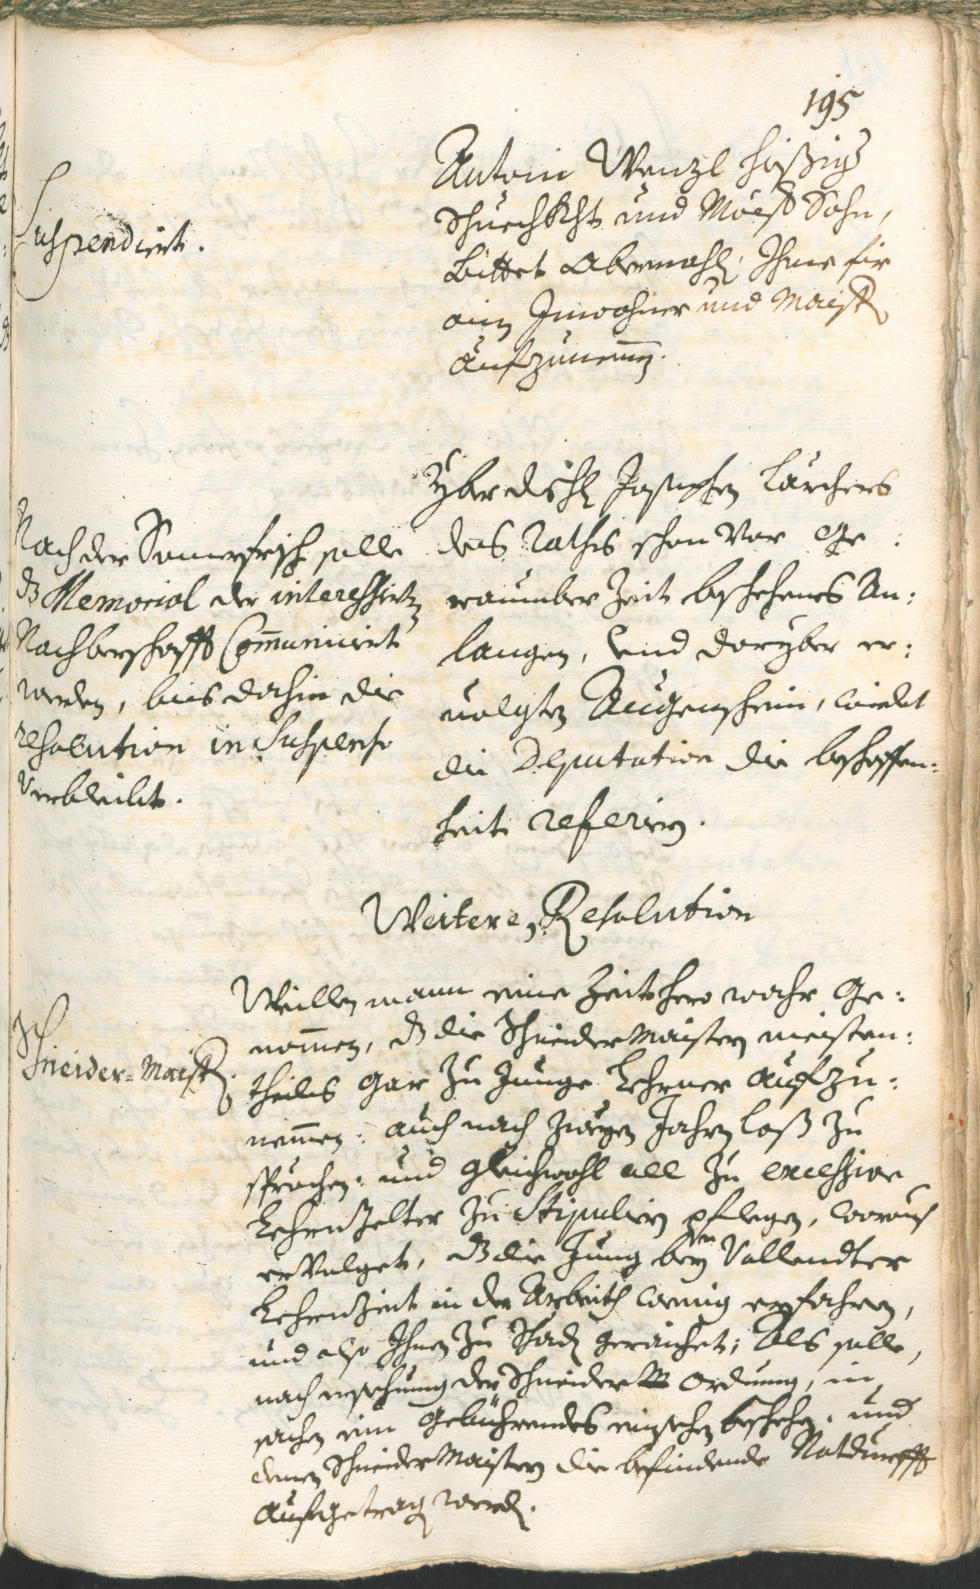 195
Suspendiert.
Antoni Wenzl hießigs
Schuechkhts und Maist Sohn,
bittet Abermahl, Ihme fir
ain Inwohner und Maistr
aufzunemen.
Nach der Somerfrisch solle
dz Memorial der interessirten
Nachberschafft Communiciert
werden, biss dahin die
resolution in Suspenso
Verbleibt.
Yber dish Josephen Lärchers
des Raths schon vor ge:
raumber Zeit beschehenes An:
langen, und daryber er:
volgten Augenschein, wirdet
die Deputation die beschaffen:
heit referiern.
Weitere Resolution
Schneider-Maistr.
Weillen mann eine Zeithero wahr ge:
nommen, dz die Schneider Maistern meisten:
theils gar zu Junge Lehrner aufzu:
nemmen: auch nach zwayen Jahrn loß zu
sprechen: und gleichwohl all zu excessive
Lehrngelter zu Stipuliern pflegen, woraus
ervolget, dz die Jung bey Vollendter
Lehrnzeit in der Arbeith wenig erfahren,
und also Ihnen zu Schaden geraichet; Als solle,
nach ersechung der Schneider Ordnung, in
sachen ein gebührendes einsechen beschehen. und
denen Schneider Maistern die befindende Notdurfft
aufgetragen werden.